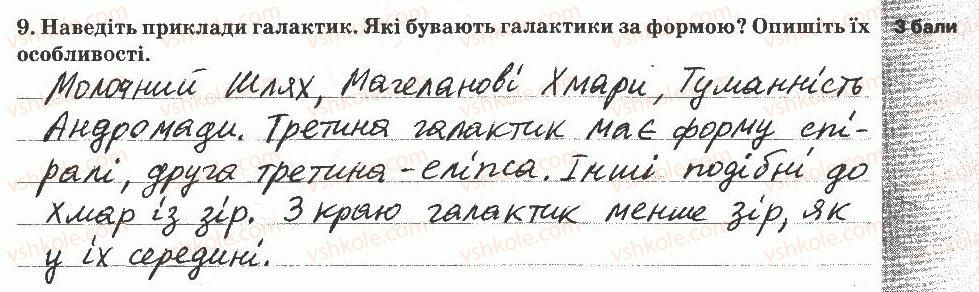 9. Наведіть приклади галактик. Які бувають галактики за формою? Опишіть їх 3 бали
особливості.
Молочний Шлях, Магеланові Хмари, Туманність
Андромади. Третина галактик має форму спі-
ралі, друга третина - еліпса. Інші подібні до
хмар із зір. З краю галактик менше зір, як
у їх середині.